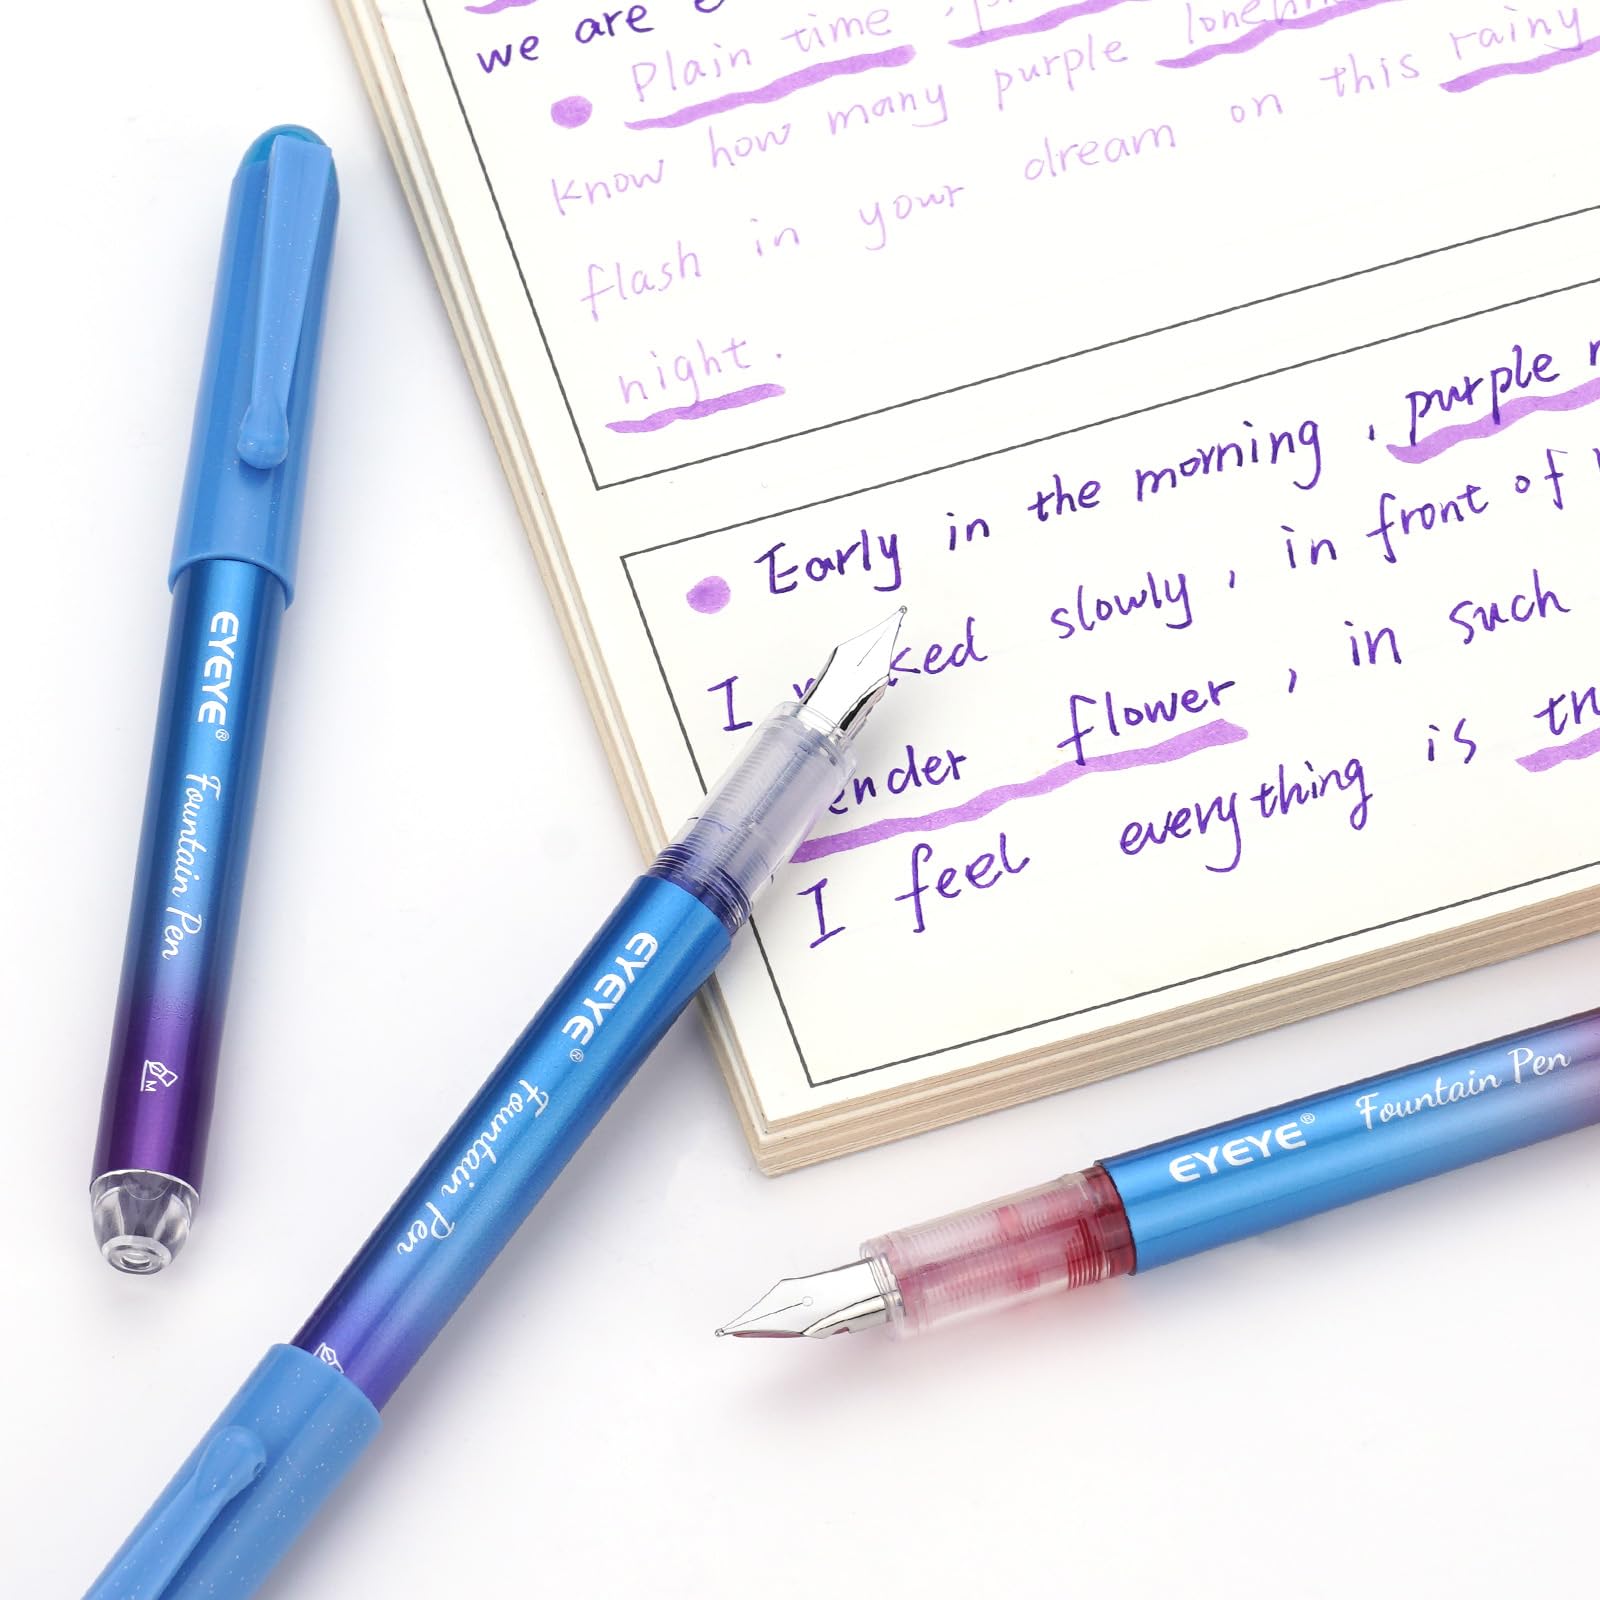 we are
Plain time
know how many purple loneliness
flash in your dream on this rainy
night.
Early in the morning, purple
I ked slowly, in front of
ender flower, in such
I feel everything is th
EYEYE® Fountain Pen
M
EYEYE® Fountain Pen
EYEYE® Fountain Pen